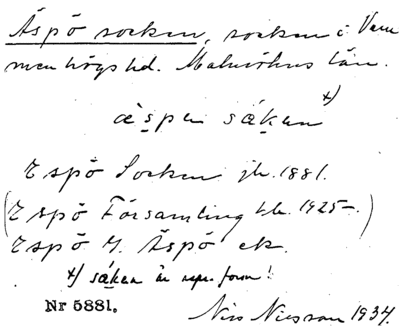 Äspö socken, socken i Vem
menhögs hd. Malmöhus län.
äspen såkan x)
Espö Socken jb. 1881.
(Espö Församling bl. 1925–.)
Espö l. Äspö ek.
x) såkan är form!
Nr 5881.
Nils Nilsson 1934.